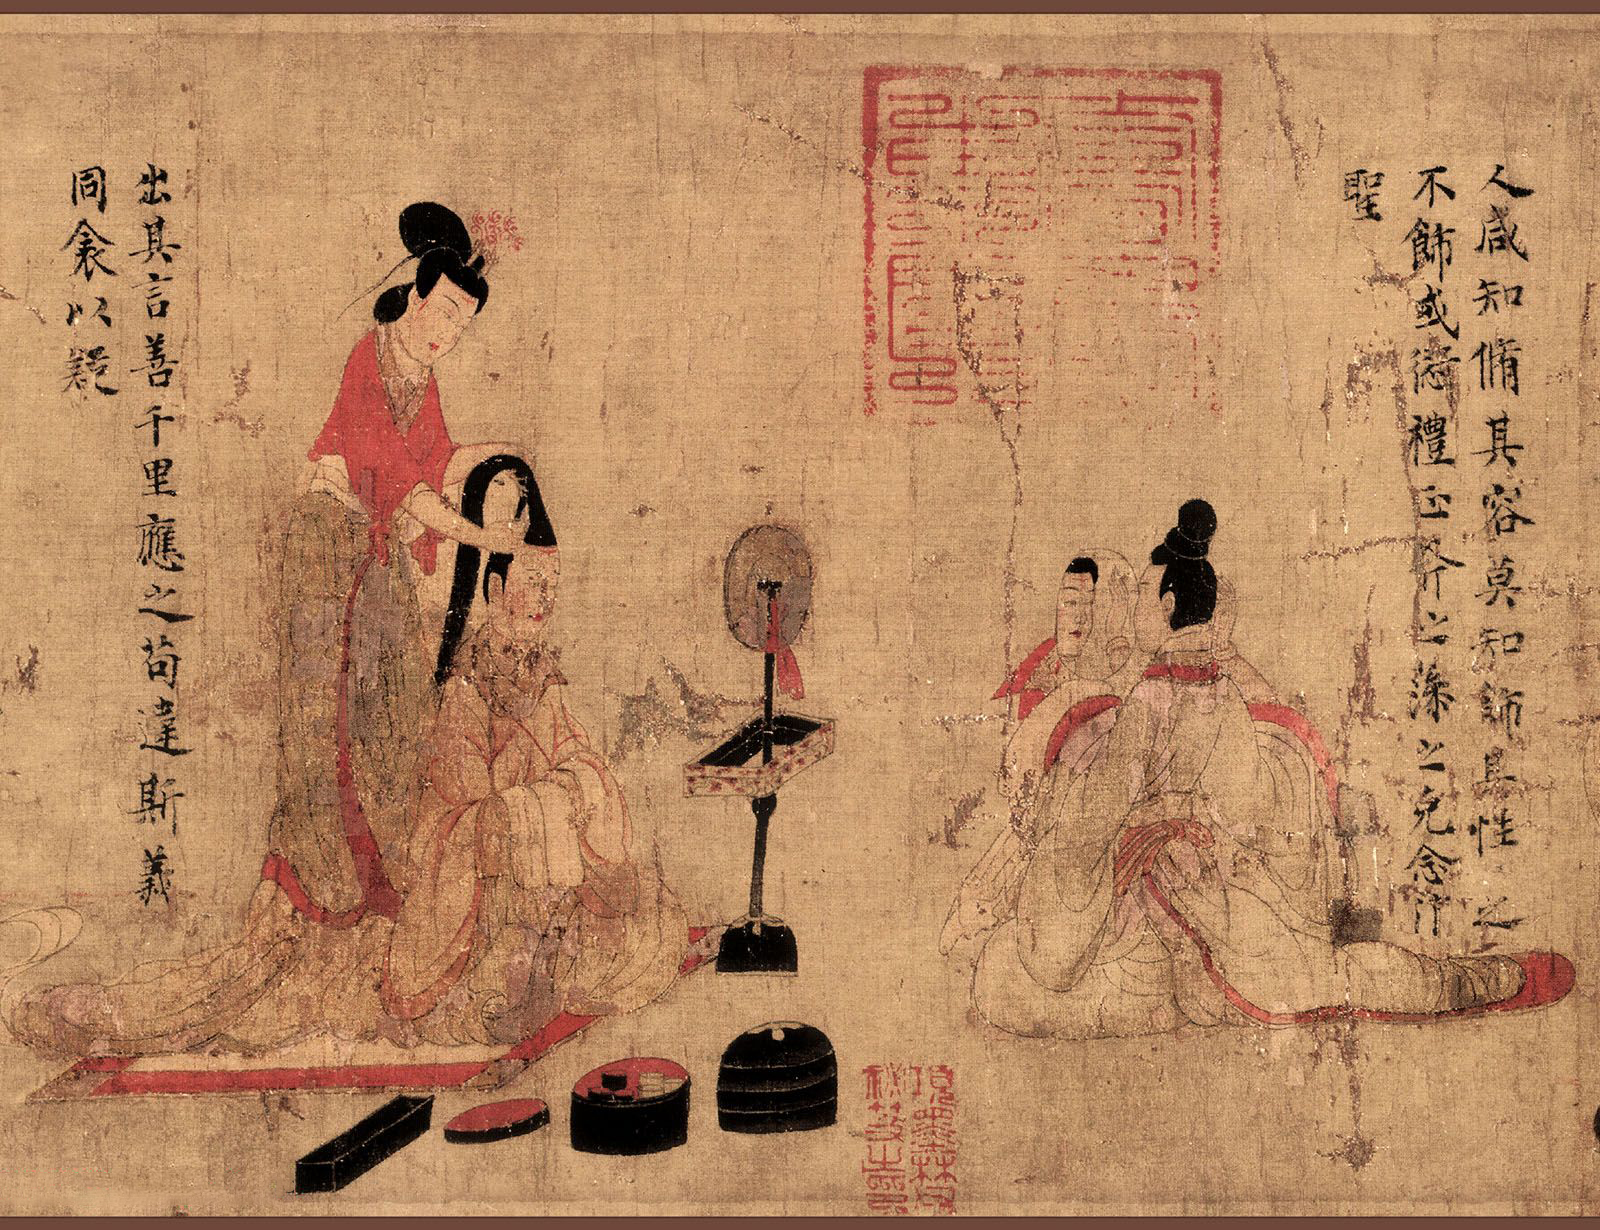 人咸知脩其容莫知飾其性性之
不飾或愆禮正斧之藻之克念作
聖
出其言善千里應之苟違斯義
同衾以疑